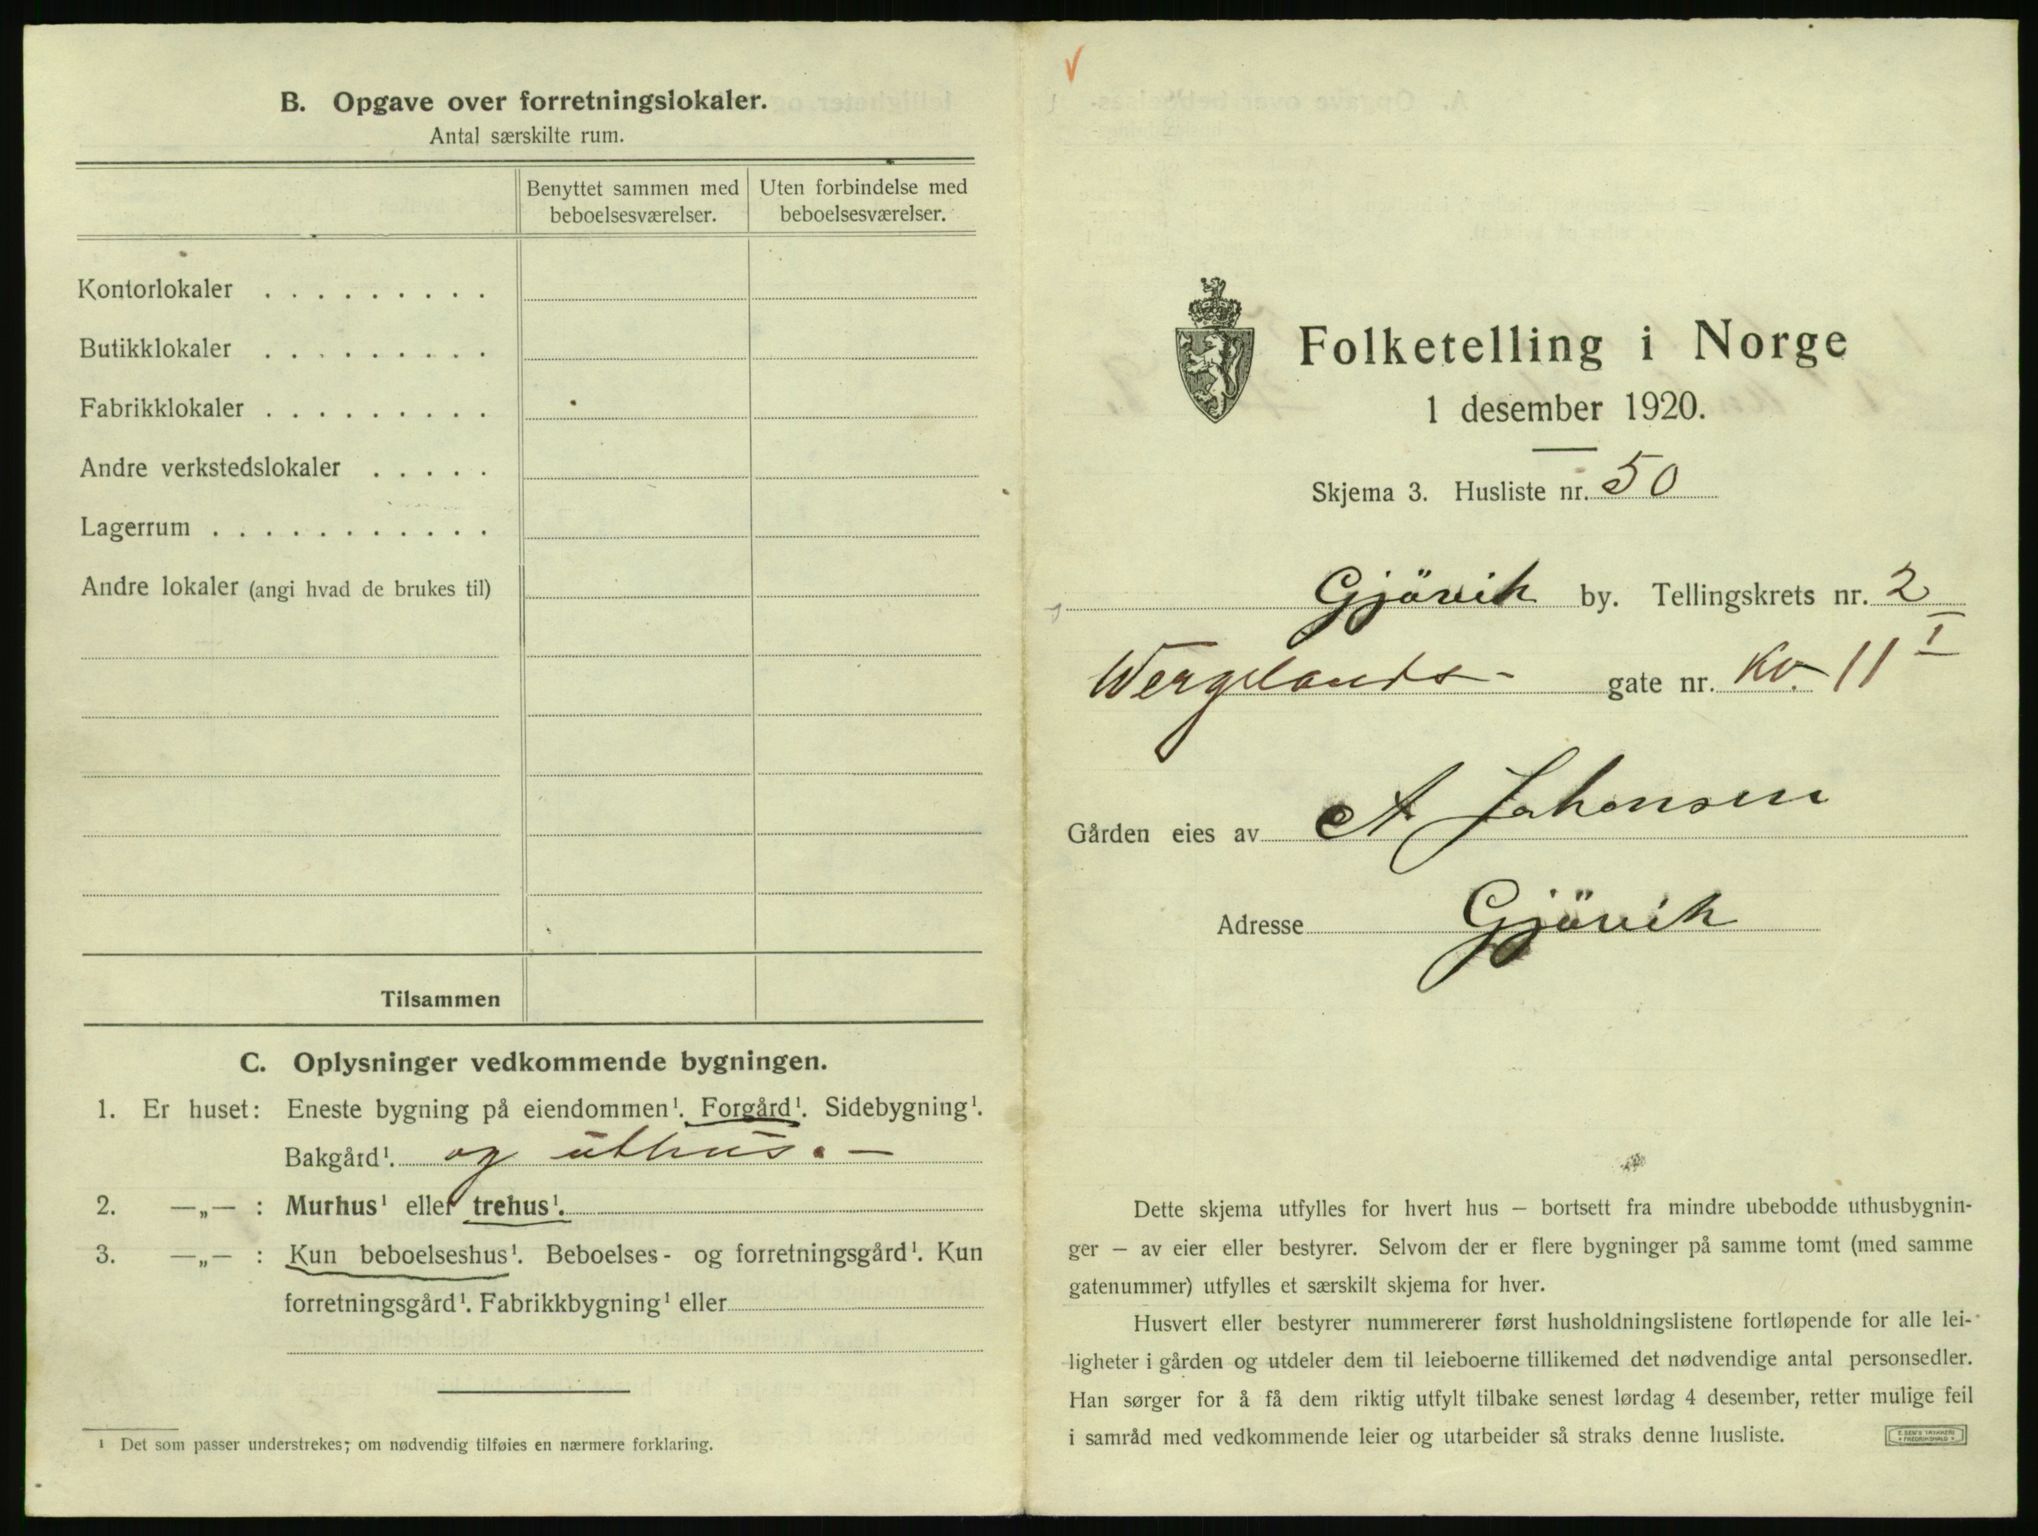 B. Opgave over forretningslokaler.
Antal særskilte rum.
Benyttet sammen med beboelsesværelser.
Uten forbindelse med beboelsesværelser.
Kontorlokaler . . . . . . . . .
Butikklokaler . . . . . . . . .
Fabrikklokaler . . . . . . . . .
Andre verkstedslokaler . . . . .
Lagerrum . . . . . . . . . . .
Andre lokaler (angi hvad de brukes til)
Tilsammen
C. Oplysninger vedkommende bygningen.
1. Er huset: Eneste bygning på eiendommen¹. Forgård¹. Sidebygning¹.
Bakgård¹. og uthus. —
2. —„— : Murhus¹ eller trehus¹.
3. —„— : Kun beboelseshus¹. Beboelses- og forretningsgård¹. Kun
forretningsgård¹. Fabrikkbygning¹ eller
¹ Det som passer understrekes; om nødvendig tilføies en nærmere forklaring.
Folketelling i Norge
1 desember 1920.
Skjema 3. Husliste nr. 50
Gjövik by. Tellingskrets nr. 2
Wergelands- gate nr. Kv. 11 I
Gården eies av A Johansen
Adresse Gjövik
Dette skjema utfylles for hvert hus – bortsett fra mindre ubebodde uthusbygnin-
ger – av eier eller bestyrer. Selvom der er flere bygninger på samme tomt (med samme
gatenummer) utfylles et særskilt skjema for hver.
Husvert eller bestyrer nummererer først husholdningslistene fortløpende for alle lei-
ligheter i gården og utdeler dem til leieboerne tillikemed det nødvendige antal personsedler.
Han sørger for å få dem riktig utfylt tilbake senest lørdag 4 desember, retter mulige feil
i samråd med vedkommende leier og utarbeider så straks denne husliste.